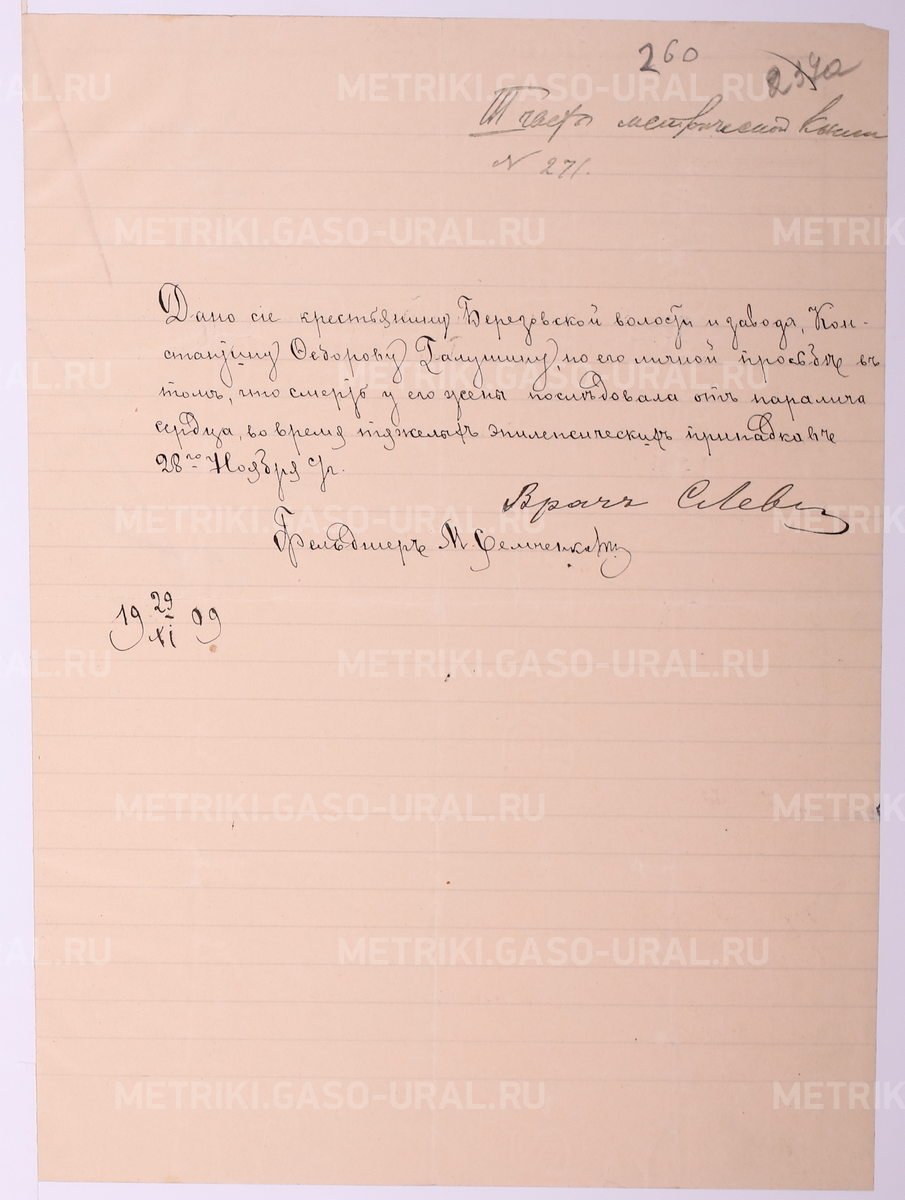 260
237а
III части метрической книги
N 271.
Дано сіе крестьянину Березовской волости и завода, Кон-
стантину Ѳедорову Галушину, по его личной просьбѣ въ
томъ, что смерть у его жены послѣдовала отъ паралича
сердца, во время тяжелыхъ эпилепсическихъ припадковъ
28го Ноября с/г.
Врачъ
Фельдшеръ М.
19 29/XI 09
METRIKI.GASO-URAL.RU